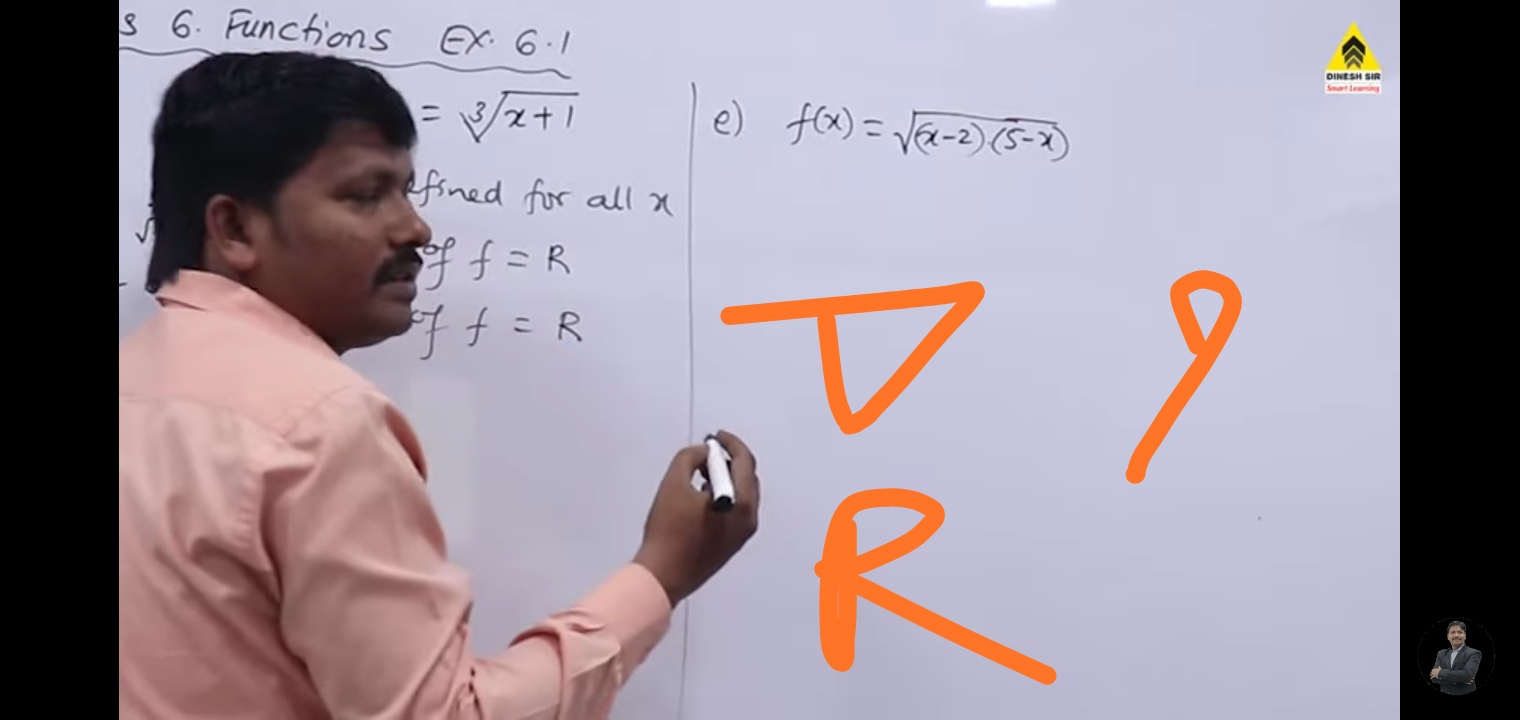 s 6. Functions Ex. 6.1
= ∛(x+1)
efined for all x
of f = R
of f = R
e) f(x) = √(x-2).(5-x)
R
DINESH SIR
Smart Learning